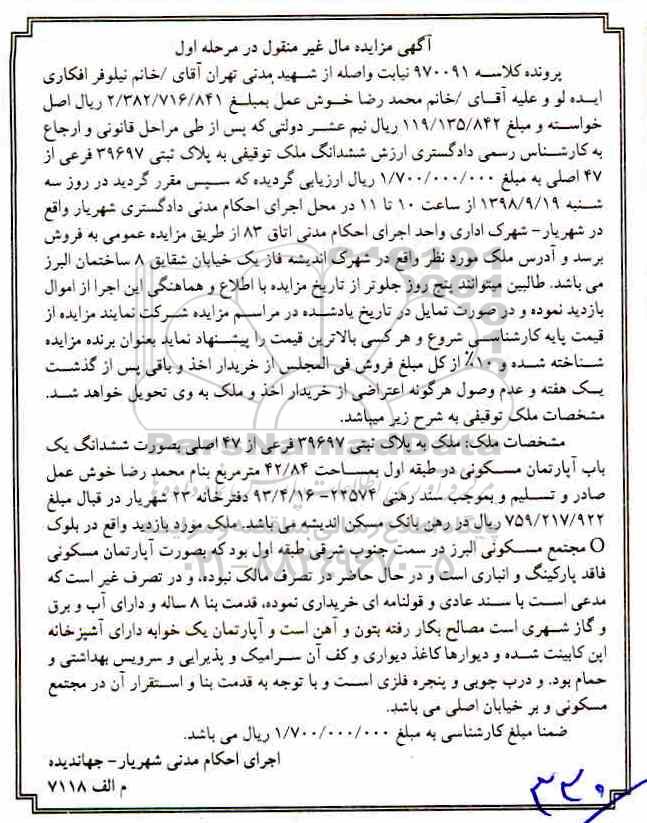 آگهی مزایده مال غیر منقول در مرحله اول
پرونده کلاسه ۹۷۰۰۹۱ نیابت واصله از شهید مدنی تهران آقای /خانم نیلوفر افکاری
ایده لو و علیه آقای /خانم محمد رضا خوش عمل بمبلغ ۲/۳۸۲/۷۱۶/۸۴۱ ریال اصل
خواسته و مبلغ ۱۱۹/۱۳۵/۸۴۲ ریال نیم عشر دولتی که پس از طی مراحل قانونی و ارجاع
به کارشناس رسمی دادگستری ارزش ششدانگ ملک توقیفی به پلاک ثبتی ۳۹۶۹۷ فرعی از
۴۷ اصلی به مبلغ ۱/۷۰۰/۰۰۰/۰۰۰ ریال ارزیابی گردیده که سپس مقرر گردید در روز سه
شنبه ۱۳۹۸/۹/۱۹ از ساعت ۱۰ تا ۱۱ در محل اجرای احکام مدنی دادگستری شهریار واقع
در شهریار- شهرک اداری واحد اجرای احکام مدنی اتاق ۸۳ از طریق مزایده عمومی به فروش
برسد و آدرس ملک مورد نظر واقع در شهرک اندیشه فاز یک خیابان شقایق ۸ ساختمان البرز
می باشد. طالبین میتوانند پنج روز جلوتر از تاریخ مزایده با اطلاع و هماهنگی این اجرا از اموال
بازدید نموده و در صورت تمایل در تاریخ یادشده در مراسم مزایده شرکت نمایند مزایده از
قیمت پایه کارشناسی شروع و هر کسی بالاترین قیمت را پیشنهاد نماید بعنوان برنده مزایده
شناخته شده و ۱۰٪ از کل مبلغ فروش فی المجلس از خریدار اخذ و باقی پس از گذشت
یک هفته و عدم وصول هرگونه اعتراضی از خریدار اخذ و ملک به وی تحویل خواهد شد.
مشخصات ملک توقیفی به شرح زیر میباشد.
مشخصات ملک: ملک به پلاک ثبتی ۳۹۶۹۷ فرعی از ۴۷ اصلی بصورت ششدانگ یک
باب آپارتمان مسکونی در طبقه اول بمساحت ۴۲/۸۴ مترمربع بنام محمد رضا خوش عمل
صادر و تسلیم و بموجب سند رهنی ۲۲۵۷۴- ۹۳/۴/۱۶ دفترخانه ۲۳ شهریار در قبال مبلغ
۷۵۹/۲۱۷/۹۲۲ ریال در رهن بانک مسکن اندیشه می باشد. ملک مورد بازدید واقع در بلوک
O مجتمع مسکونی البرز در سمت جنوب شرقی طبقه اول بود که بصورت آپارتمان مسکونی
فاقد پارکینگ و انباری است و در حال حاضر در تصرف مالک نبوده، و در تصرف غیر است که
مدعی است با سند عادی و قولنامه ای خریداری نموده، قدمت بنا ۸ ساله و دارای آب و برق
و گاز شهری است مصالح بکار رفته بتون و آهن است و آپارتمان یک خوابه دارای آشپزخانه
اپن کابینت شده و دیوارها کاغذ دیواری و کف آن سرامیک و پذیرایی و سرویس بهداشتی و
حمام بود. و درب چوبی و پنجره فلزی است و با توجه به قدمت بنا و استقرار آن در مجتمع
مسکونی و بر خیابان اصلی می باشد.
ضمنا مبلغ کارشناسی به مبلغ ۱/۷۰۰/۰۰۰/۰۰۰ ریال می باشد.
اجرای احکام مدنی شهریار- جهاندیده
م الف ۷۱۱۸
۳۳۰
ParsNamadData
۰۲۱-۸۸۳۴۹۶۷۰-۵